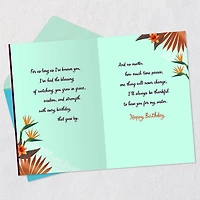 For as long as I've known you,
I've had the blessing
of watching you grow in grace,
wisdom, and strength
with every birthday
that goes by.
And no matter
how much time passes,
one thing will never change,
I'll always be thankful
to have you for my sister.
Happy Birthday